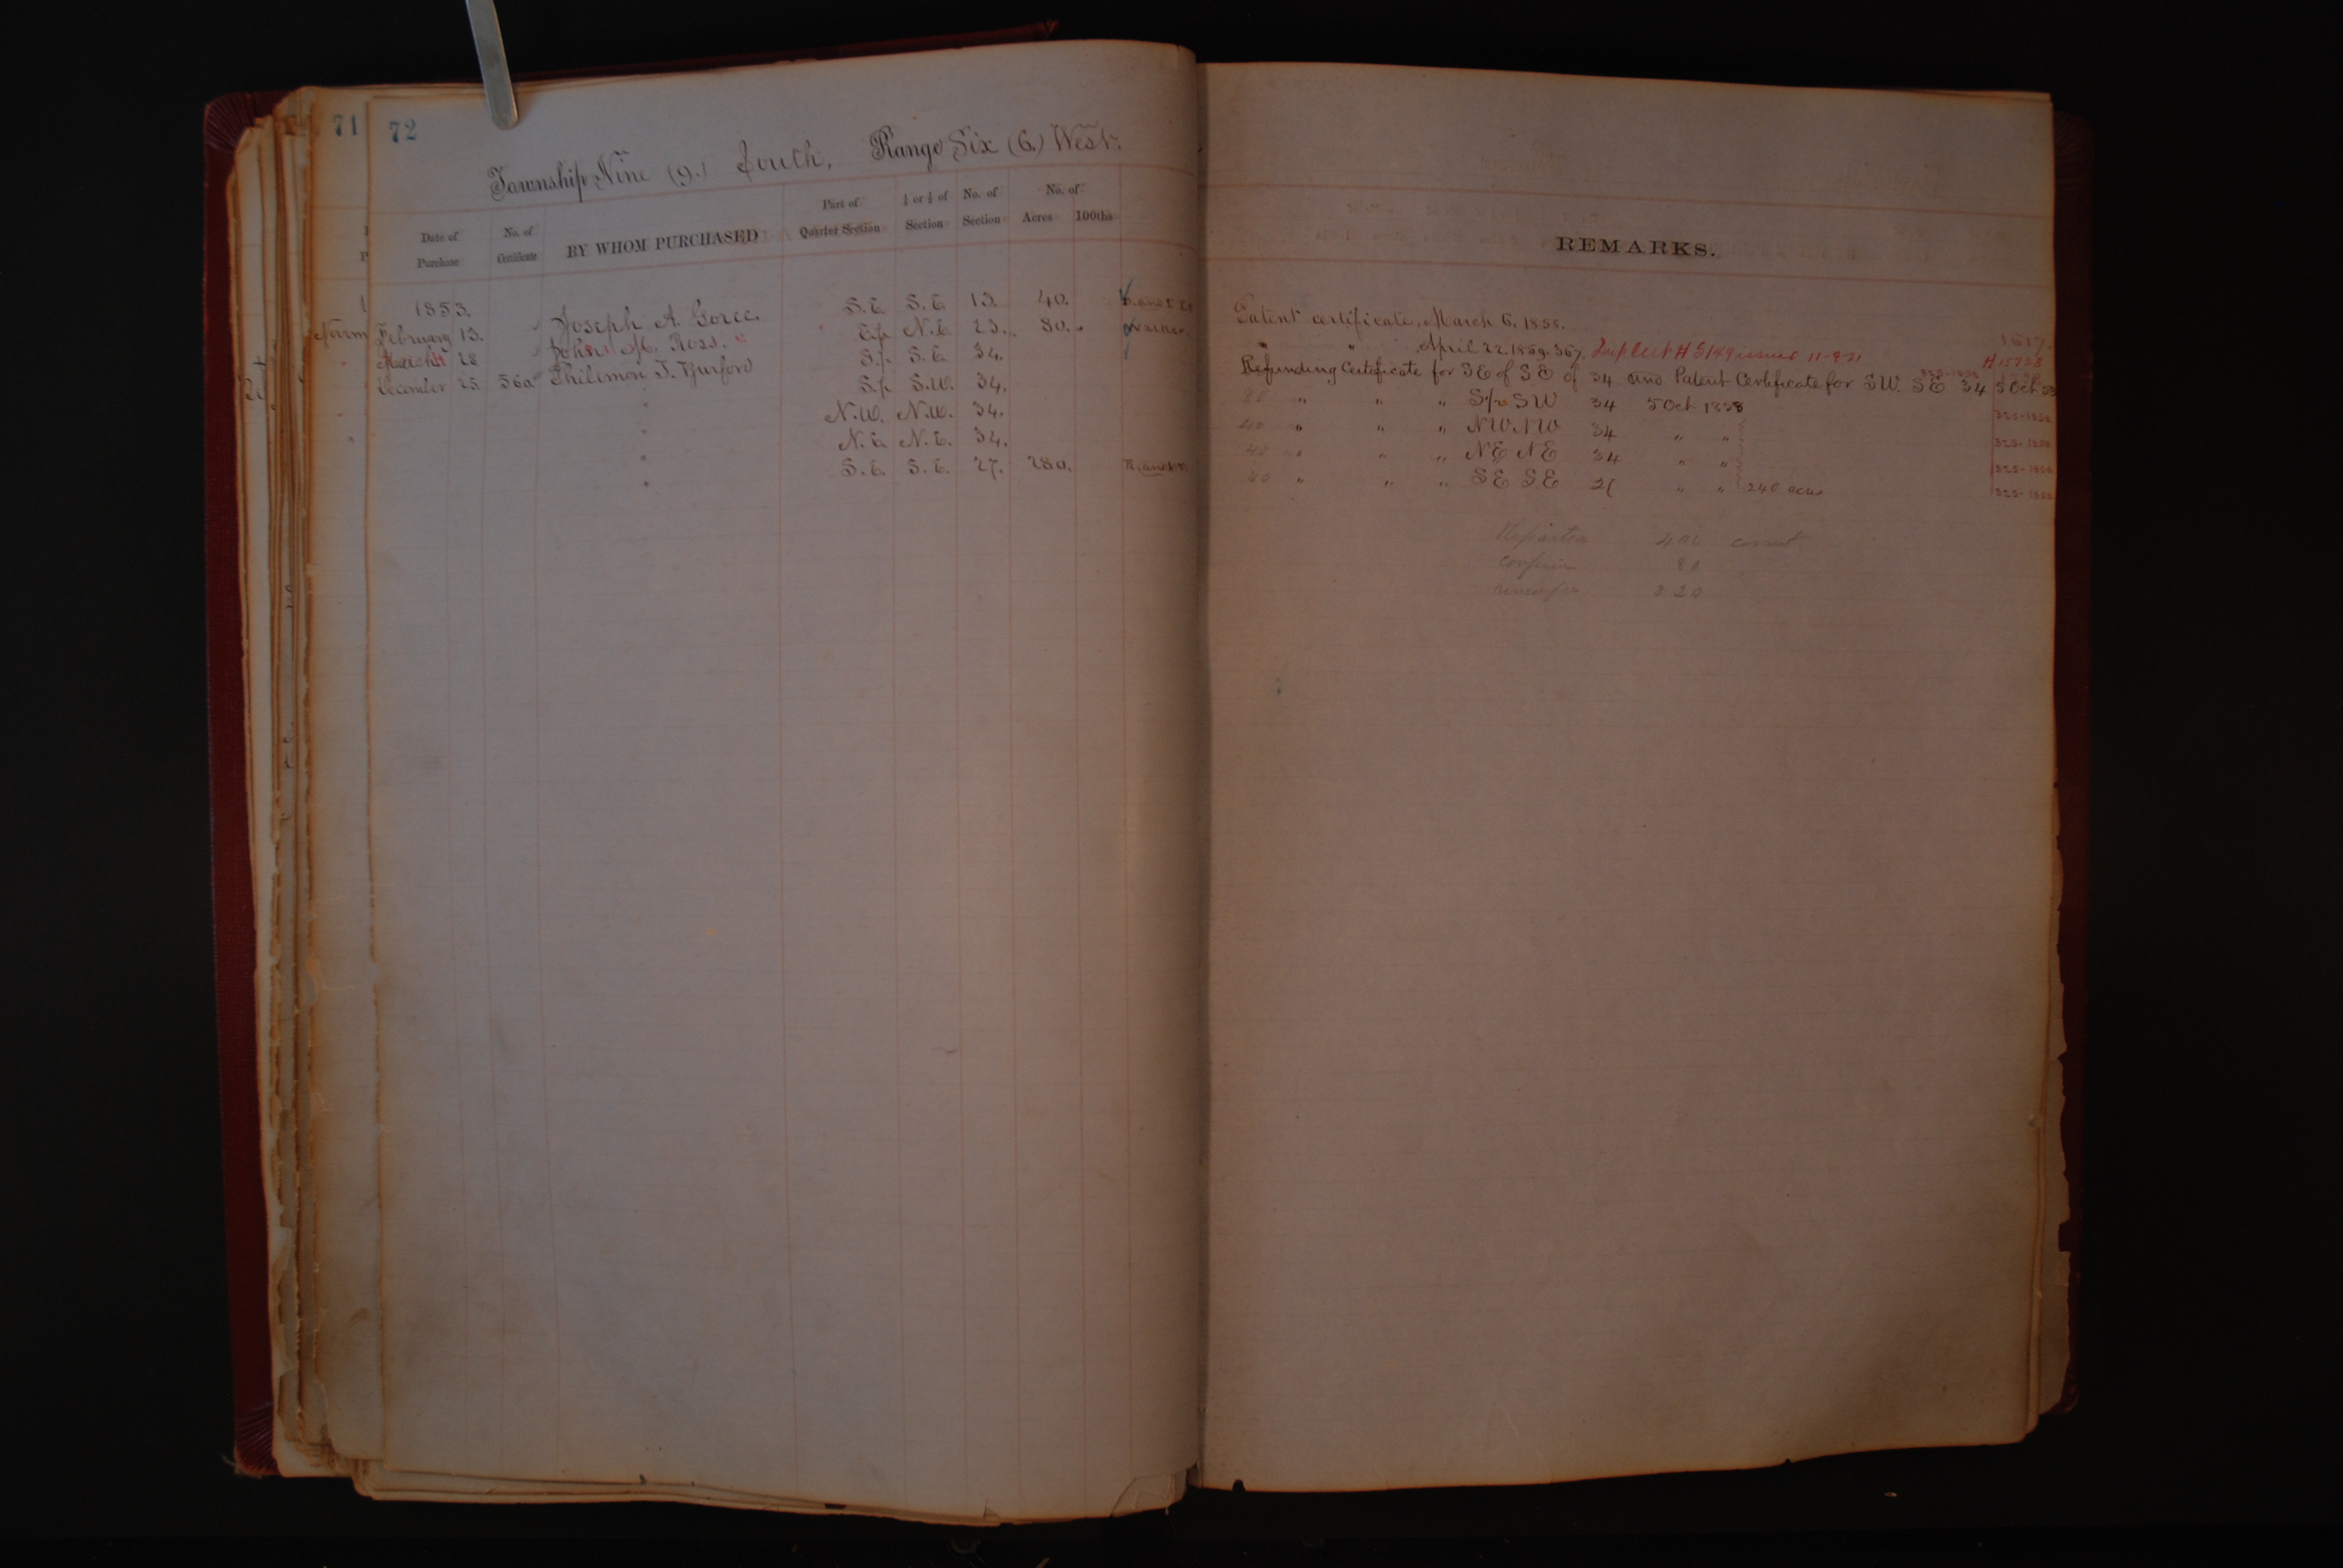 71 72
Township Nine (9.) South, Range Six (6.) West.
Date of Purchase
No. of Certificate
BY WHOM PURCHASED
Part of Quarter Section
¼ or ½ of Section
No. of Section
No. of Acres 100ths
REMARKS.
1853.
February 13. Joseph A. Goree. S.E. S.E. 13. 40.
March 28 John M. Ross. E½ N.E. 23. 80.
December 25. 560. Philemon T. Burford S½ S.E. 34.
" S½ S.W. 34.
" N.W. N.W. 34.
" N.E. N.E. 34.
" S.E. S.E. 27. 280.
Patent certificate, March 6, 1855.
" " April 22. 1859. 367. Duplct # 5149 issued 11-9-21 #15728
Refunding Certificate for SE of SE of 34 and Patent Certificate for SW. SE 34 5 Oct 58
80 " " " S½ SW 34 5 Oct 1858
40 " " " NW NW 34 " "
40 " " " NE NE 34 " "
40 " " " SE SE 27 " " 240 acres
400 correct
80